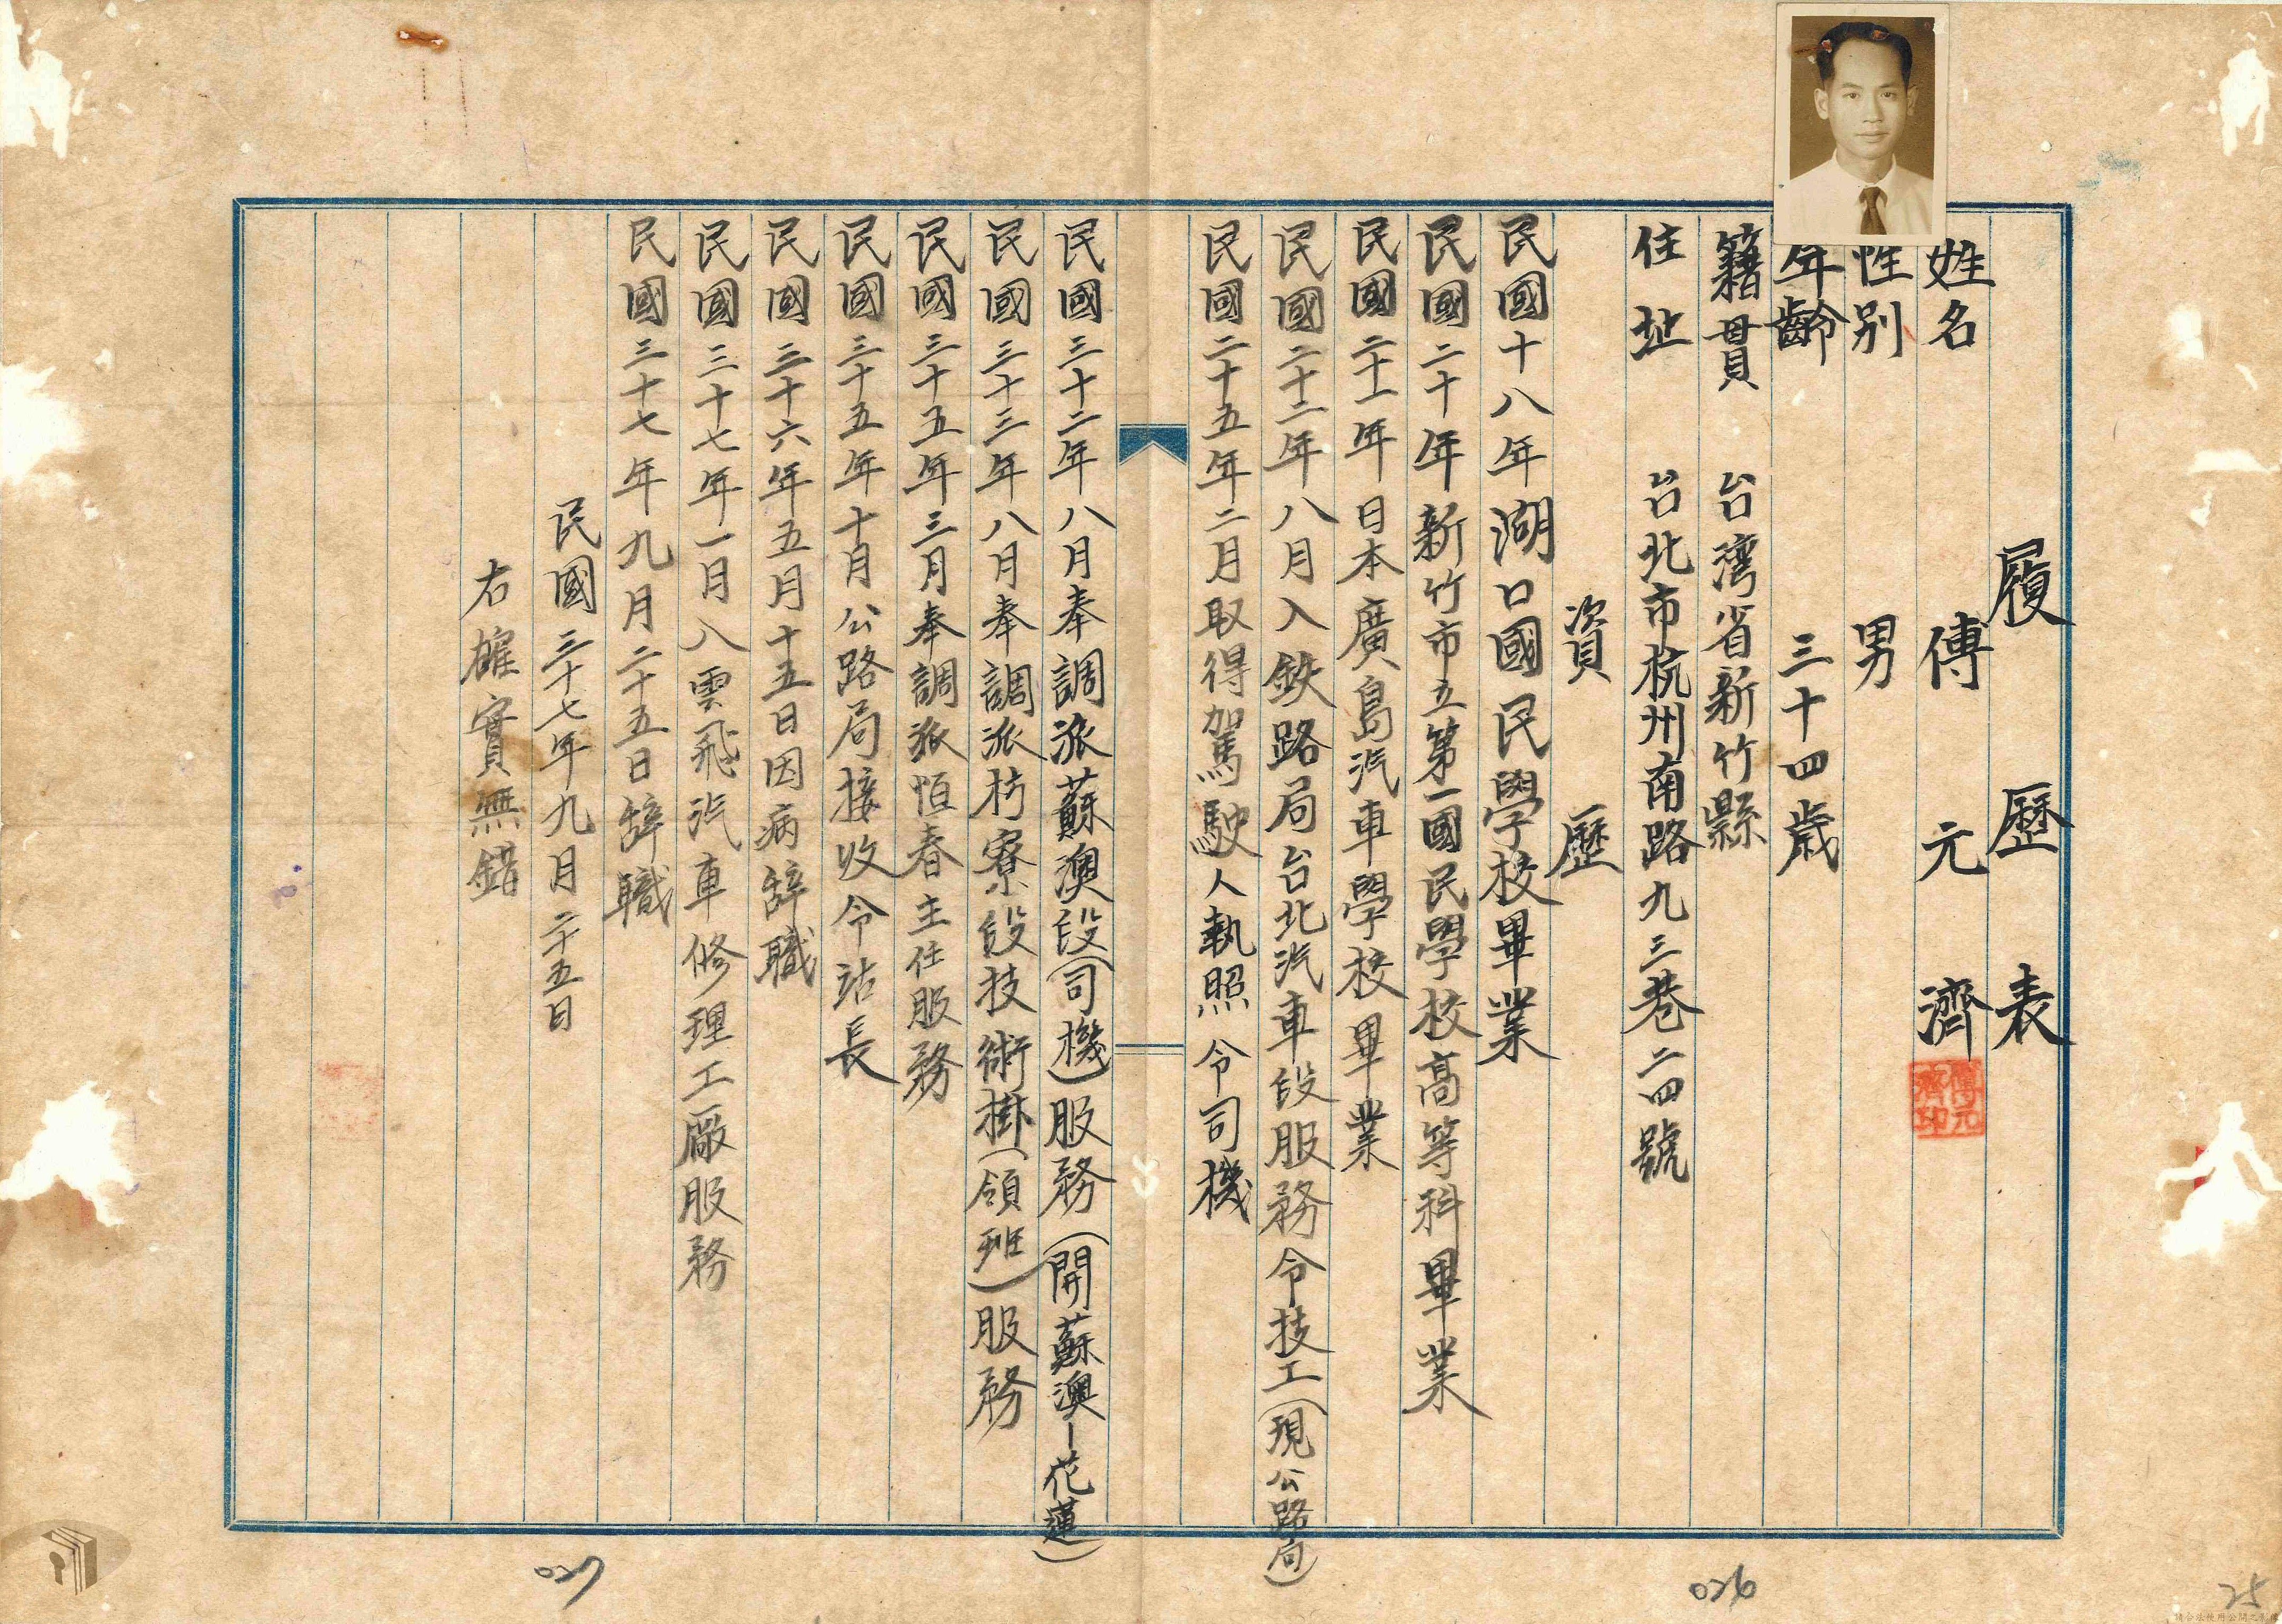 履歷表
姓名 傅元濟
傅元濟印
性別 男
年齡 三十四歲
籍貫 台湾省新竹縣
住址 台北市杭州南路九三巷二四號
資歷
民國十八年湖口國民學校畢業
民國二十年新竹市立第一國民學校高等科畢業
民國二十一年日本廣島汽車學校畢業
民國二十二年八月入鉄路局台北汽車段服務令技工(現公路局)
民國二十五年二月取得駕駛人執照令司機
民國三十二年八月奉調派蘇澳段(司機)服務(開蘇澳—花蓮)
民國三十三年八月奉調派枋寮段技術掛(領班)服務
民國三十五年三月奉調派恒春主任服務
民國三十五年十月公路局接收令站長
民國三十六年五月十五日因病辞職
民國三十七年一月八雲飛汽車修理工廠服務
民國三十七年九月二十五日辞職
民國三十七年九月二十五日
右確實無錯
026
25